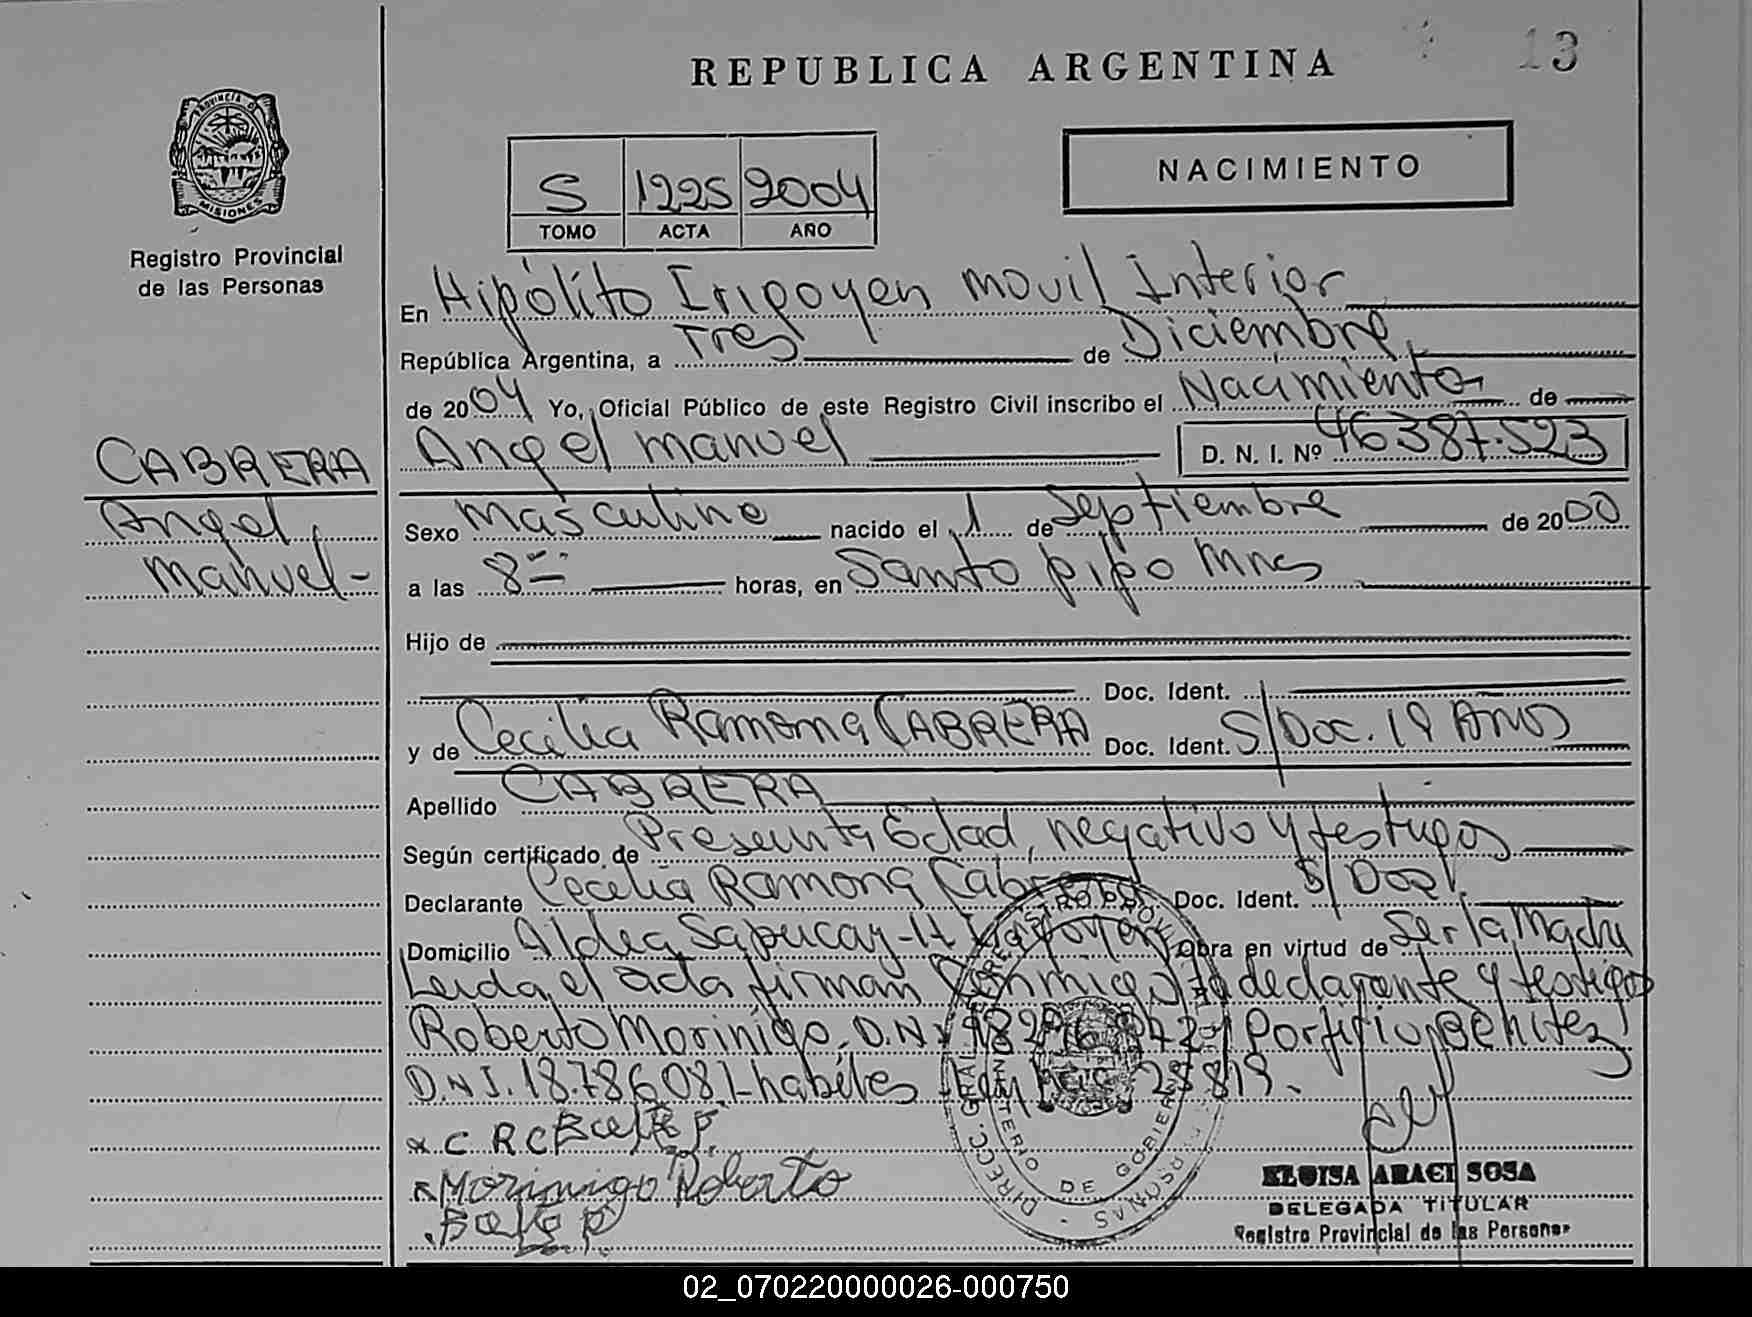 REPUBLICA ARGENTINA
13
PROVINCIA DE
MISIONES
Registro Provincial
de las Personas
S 1225 2004
TOMO ACTA AÑO
NACIMIENTO
En Hipólito Irigoyen Movil Interior
República Argentina, a Tres de Diciembre
de 2004 Yo, Oficial Público de este Registro Civil inscribo el Nacimiento de
CABRERA
Angel Manuel D. N. I. Nº 46387.523
Angel
Manuel-
Sexo Masculino nacido el 1 de Septiembre de 2000
a las 8 horas, en Santo pipo Mnes
Hijo de
Doc. Ident.
y de Cecilia Ramona CABRERA Doc. Ident. S/Doc. 19 Años
Apellido CABRERA
Según certificado de Presenta Edad, negativo y testigos
Declarante Cecilia Ramona Doc. Ident. S/Doc.
Domicilio Aldea Sapucay-H Irigoyen Obra en virtud de Ser la Madre
Leida el acta firman Conmigo la declarante y testigos
Roberto Morinigo. D.N.I. y Porfirio Benitez
D.N.I. 18.786.081- habiles
x C R C
x Morinigo Roberto
ELOISA ARACI SOSA
DELEGADA TITULAR
Registro Provincial de las Personas
02_070220000026-000750